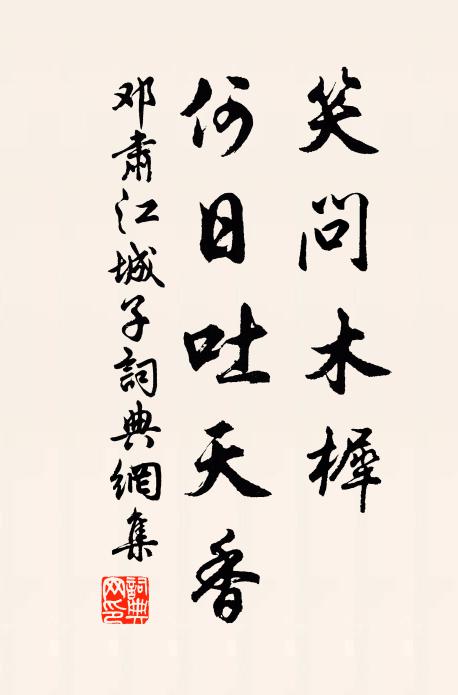 笑問木樨
何日吐天香
邓肅江城子詞典網集
詞典
网印